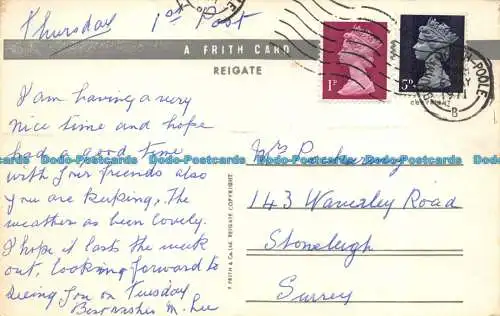 Thursday 1st Post
A FRITH CARD
REIGATE
I am having a very
nice time and hope
had a good time
with your friends also
you are keeping, The
weather as been lovely.
I hope it lasts the week
out, looking forward to
seeing you on Tuesday
Best wishes M. Lee
F. FRITH & CO. LTD. REIGATE COPYRIGHT.
Mrs
143 Waverley Road
Stoneleigh
Surrey
1P
5P
-POOLE
1971
B
COPYRIGHT
Dodo-Postcards Dodo-Postcards Dodo-Postcards Dodo-Postcards